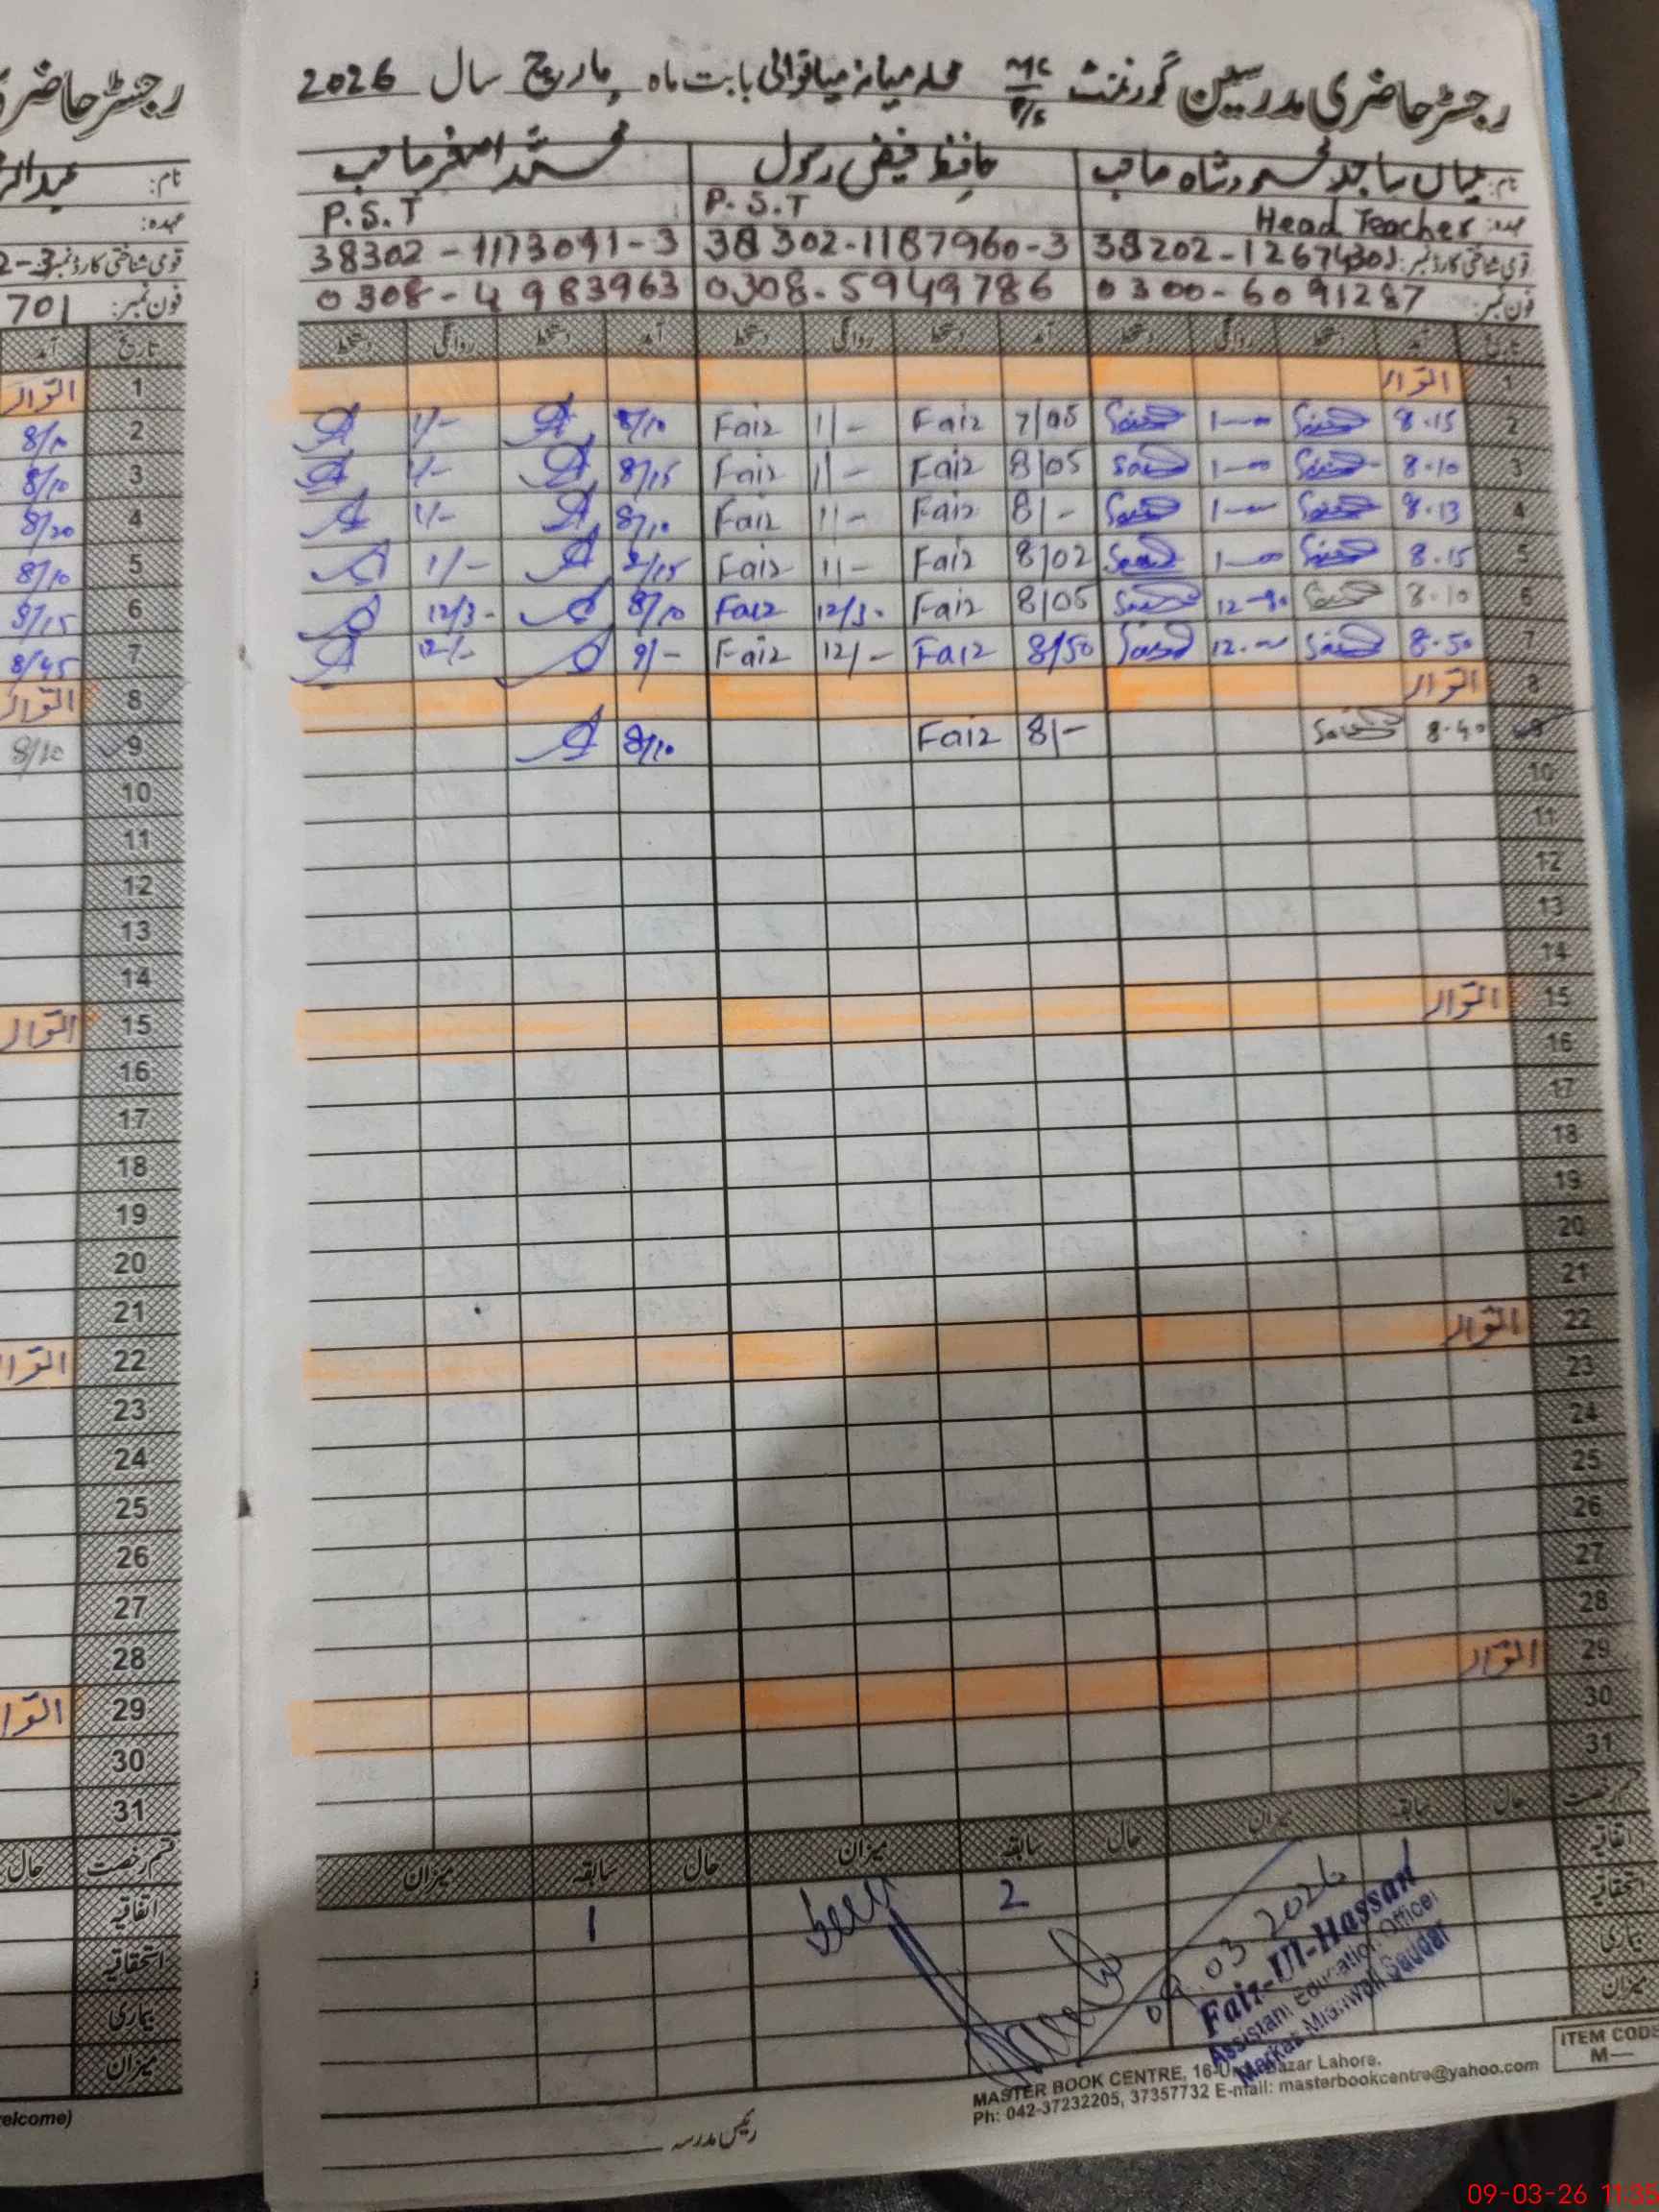 رجسٹر حاضری مدرسین گورنمنٹ MC P/S محلہ میانہ میانوالی بابت ماہ مارچ سال 2026
رجسٹر حاضری
نام: میاں ساجد محمود شاہ صاحب حافظ فیض رسول محمد اصغر صاحب
نام:
عہدہ: Head Teacher P.S.T P.S.T
عہدہ:
قومی شناختی کارڈ نمبر: 38202-1267430 38302-1187960-3 38302-1173091-3
قومی شناختی کارڈ نمبر: 2-3
فون نمبر: 0300-6091287 0308-5949786 0308-4983963
فون نمبر: 701
تاریخ آمد دستخط روانگی دستخط آمد دستخط روانگی دستخط آمد دستخط روانگی دستخط
تاریخ آمد
1 اتوار
1 اتوار
2 8.15 1-00 7/05 Faiz 1/- Faiz 8/10 1/-
2 8/10
3 8.10 1-00 8/05 Faiz 1/- Faiz 8/15 1/-
3 8/10
4 8.13 1-00 8/- Faiz 1/- Faiz 8/10 1/-
4 8/20
5 8.15 1-00 8/02 Faiz 1/- Faiz 8/15 1/-
5 8/10
6 8.10 12-30 8/05 Faiz 12/30 Faiz 8/10 12/3-
6 8/15
7 8.50 12.00 8/50 Faiz 12/- Faiz 9/- 12/-
7 8/45
8 اتوار
8 اتوار
9 8.40 8/- Faiz 8/10
9 8/10
10
10
11
11
12
12
13
13
14
14
15 اتوار
15 اتوار
16
16
17
17
18
18
19
19
20
20
21
21
22 اتوار
22 اتوار
23
23
24
24
25
25
26
26
27
27
28
28
29 اتوار
29 اتوار
30
30
31
31
قسم رخصت حال سابقہ میزان حال سابقہ میزان حال سابقہ میزان
قسم رخصت حال
اتفاقیہ 2 1
اتفاقیہ
استحقاقیہ
استحقاقیہ
بیماری
بیماری
میزان
میزان
09.03.2026
Faiz-Ul-Hassan
Assistant Education Officer
Markaz Mianwali Saddar
ITEM CODE
M—
MASTER BOOK CENTRE, 16-Urdu Bazar Lahore.
Ph: 042-37232205, 37357732 E-mail: masterbookcentre@yahoo.com
elcome)
رئیس مدرسہ
09-03-26 11:35